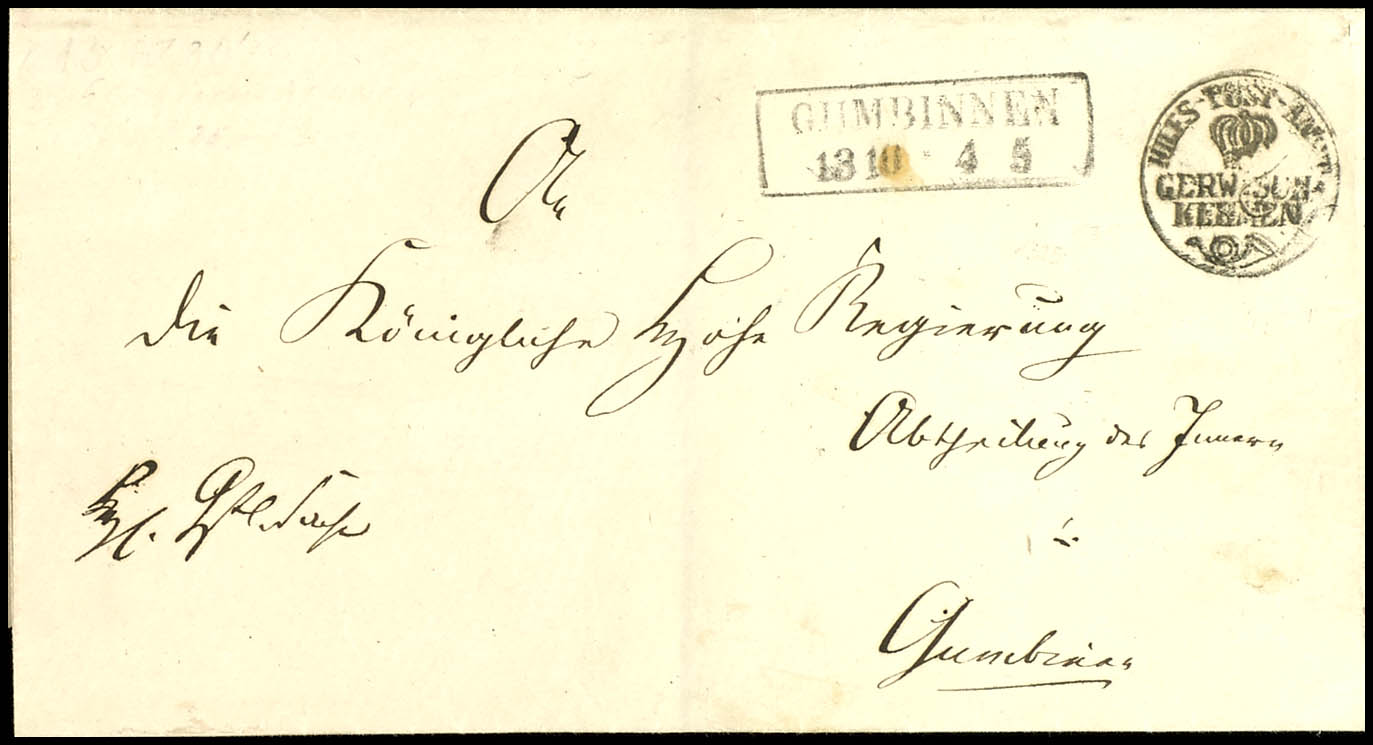 GUMBINNEN
13 10 * 4 5
HILFS-POST-AMT
GERWISCH-
KEHMEN
An
die Königliche Hohe Regierung
Abtheilung des Innern
Gumbinnen